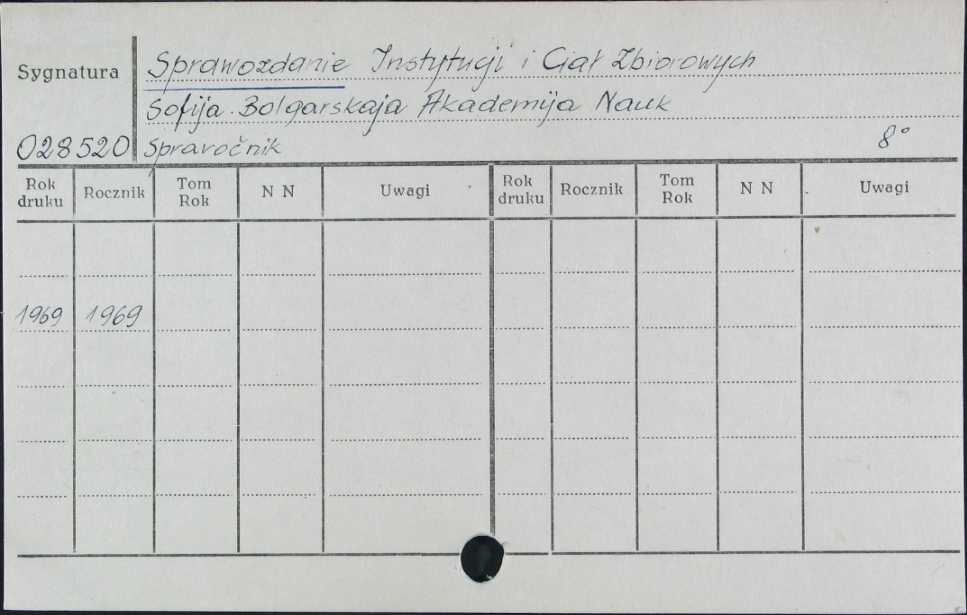 Sygnatura
Sprawozdanie Instytucji i Ciał Zbiorowych
Sofija. Bolgarskaja Akademija Nauk
028520 Spravočnik 8°
Rok druku Rocznik Tom Rok N N Uwagi Rok druku Rocznik Tom Rok N N Uwagi
1969 1969